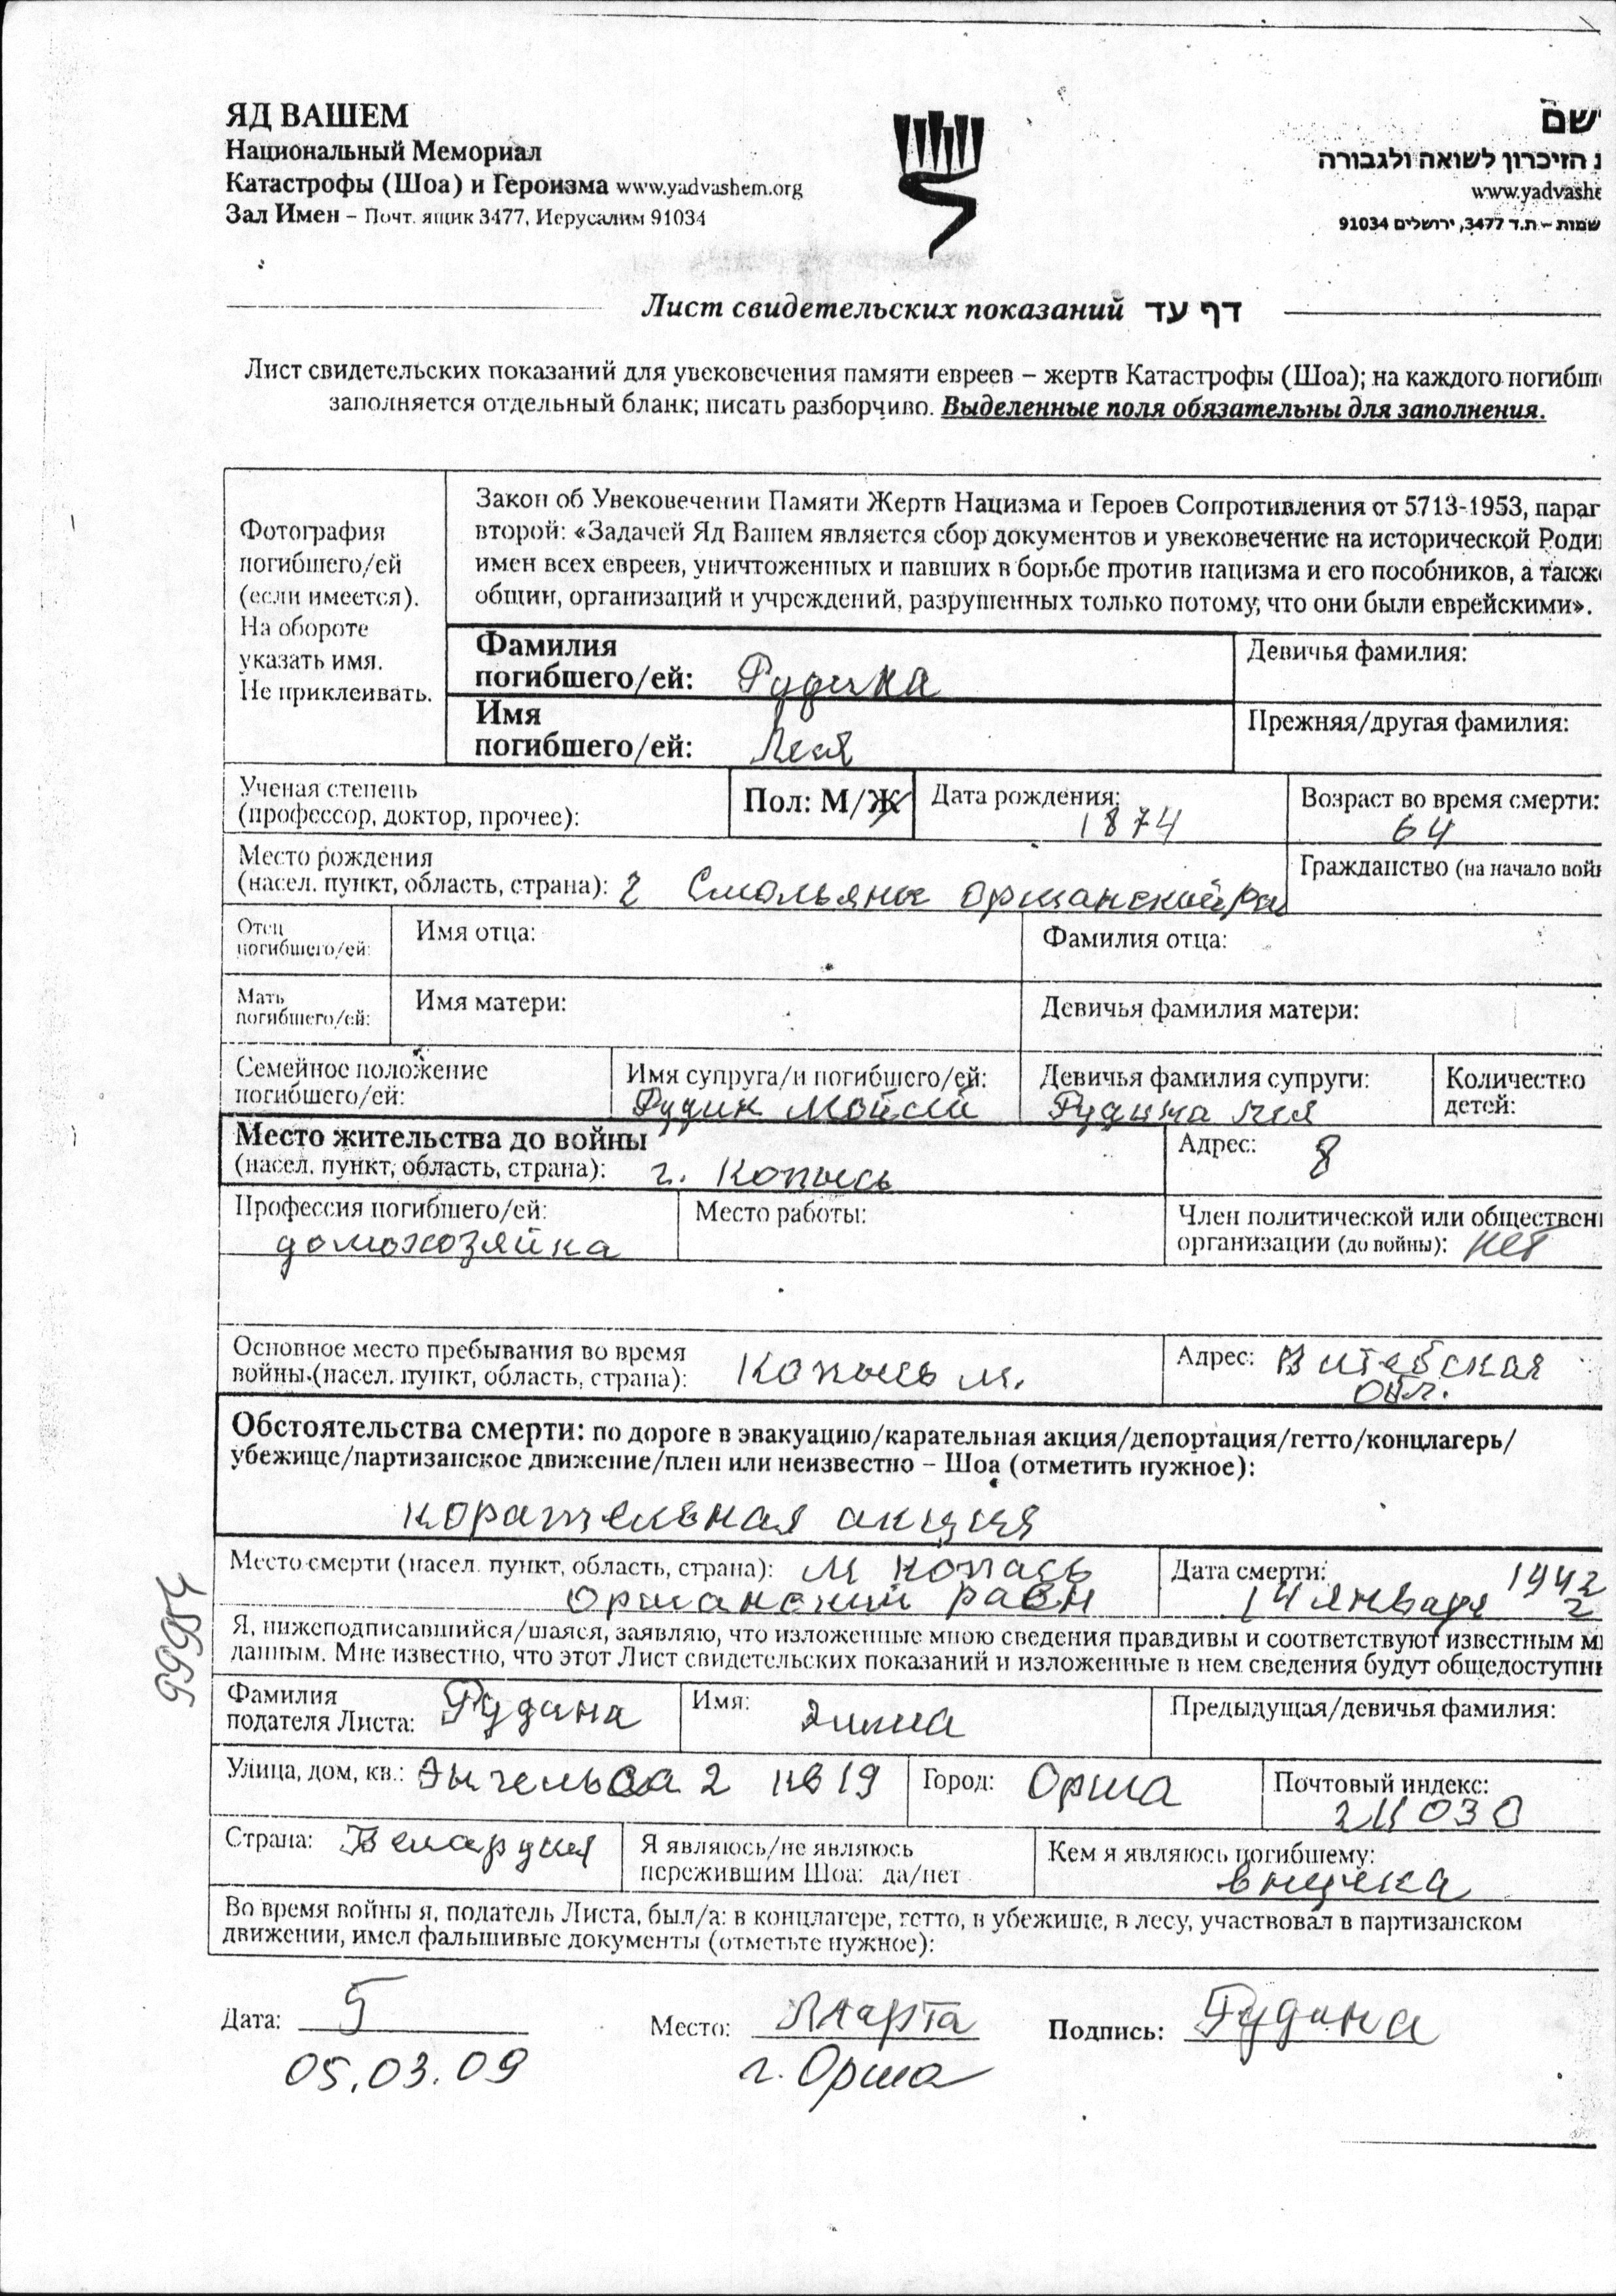 ЯД ВАШЕМ
Национальный Мемориал
Катастрофы (Шоа) и Героизма www.yadvashem.org
Зал Имен – Почт. ящик 3477, Иерусалим 91034
שם
הזיכרון לשואה ולגבורה
www.yadvashe
שמות – ת.ד 3477, ירושלים 91034
Лист свидетельских показаний דף עד
Лист свидетельских показаний для увековечения памяти евреев – жертв Катастрофы (Шоа); на каждого погибш
заполняется отдельный бланк; писать разборчиво. Выделенные поля обязательны для заполнения.
Фотография
погибшего/ей
(если имеется).
На обороте
указать имя.
Не приклеивать.
Закон об Увековечении Памяти Жертв Нацизма и Героев Сопротивления от 5713-1953, параг
второй: «Задачей Яд Вашем является сбор документов и увековечение на исторической Роди
имен всех евреев, уничтоженных и павших в борьбе против нацизма и его пособников, а такж
общин, организаций и учреждений, разрушенных только потому, что они были еврейскими».
Фамилия
погибшего/ей: Рудина
Девичья фамилия:
Имя
погибшего/ей: Лея
Прежняя/другая фамилия:
Ученая степень
(профессор, доктор, прочее):
Пол: М/Ж
Дата рождения:
1874
Возраст во время смерти:
64
Место рождения
(насел. пункт, область, страна): г Смольяны оршанский
Гражданство (на начало вой
Отец
погибшего/ей:
Имя отца:
Фамилия отца:
Мать
погибшего/ей:
Имя матери:
Девичья фамилия матери:
Семейное положение
погибшего/ей:
Имя супруга/и погибшего/ей:
Рудин Мойсей
Девичья фамилия супруги:
Рудина Лея
Количество
детей:
Место жительства до войны
(насел. пункт, область, страна): г. Копысь
Адрес: 8
Профессия погибшего/ей:
домохозяйка
Место работы:
Член политической или обществен
организации (до войны): нет
Основное место пребывания во время
войны (насел. пункт, область, страна): Копысь м.
Адрес: Витебская
обл.
Обстоятельства смерти: по дороге в эвакуацию/карательная акция/депортация/гетто/концлагерь/
убежище/партизанское движение/плен или неизвестно – Шоа (отметить нужное):
корательная акция
Место смерти (насел. пункт, область, страна): м Копась
Оршанский раён
Дата смерти: 1942
14 января 2
Я, нижеподписавшийся/шаяся, заявляю, что изложенные мною сведения правдивы и соответствуют известным м
данным. Мне известно, что этот Лист свидетельских показаний и изложенные в нем сведения будут общедоступн
99954
Фамилия
подателя Листа: Рудина
Имя:
Предыдущая/девичья фамилия:
Улица, дом, кв.: 2 кв 19
Город: Орша
Почтовый индекс:
211030
Страна: Беларусия
Я являюсь/не являюсь
пережившим Шоа: да/нет
Кем я являюсь погибшему:
внучка
Во время войны я, податель Листа, был/а: в концлагере, гетто, в убежище, в лесу, участвовал в партизанском
движении, имел фальшивые документы (отметьте нужное):
Дата: 5
Место: Марта
Подпись: Рудина
05.03.09
г. Орша